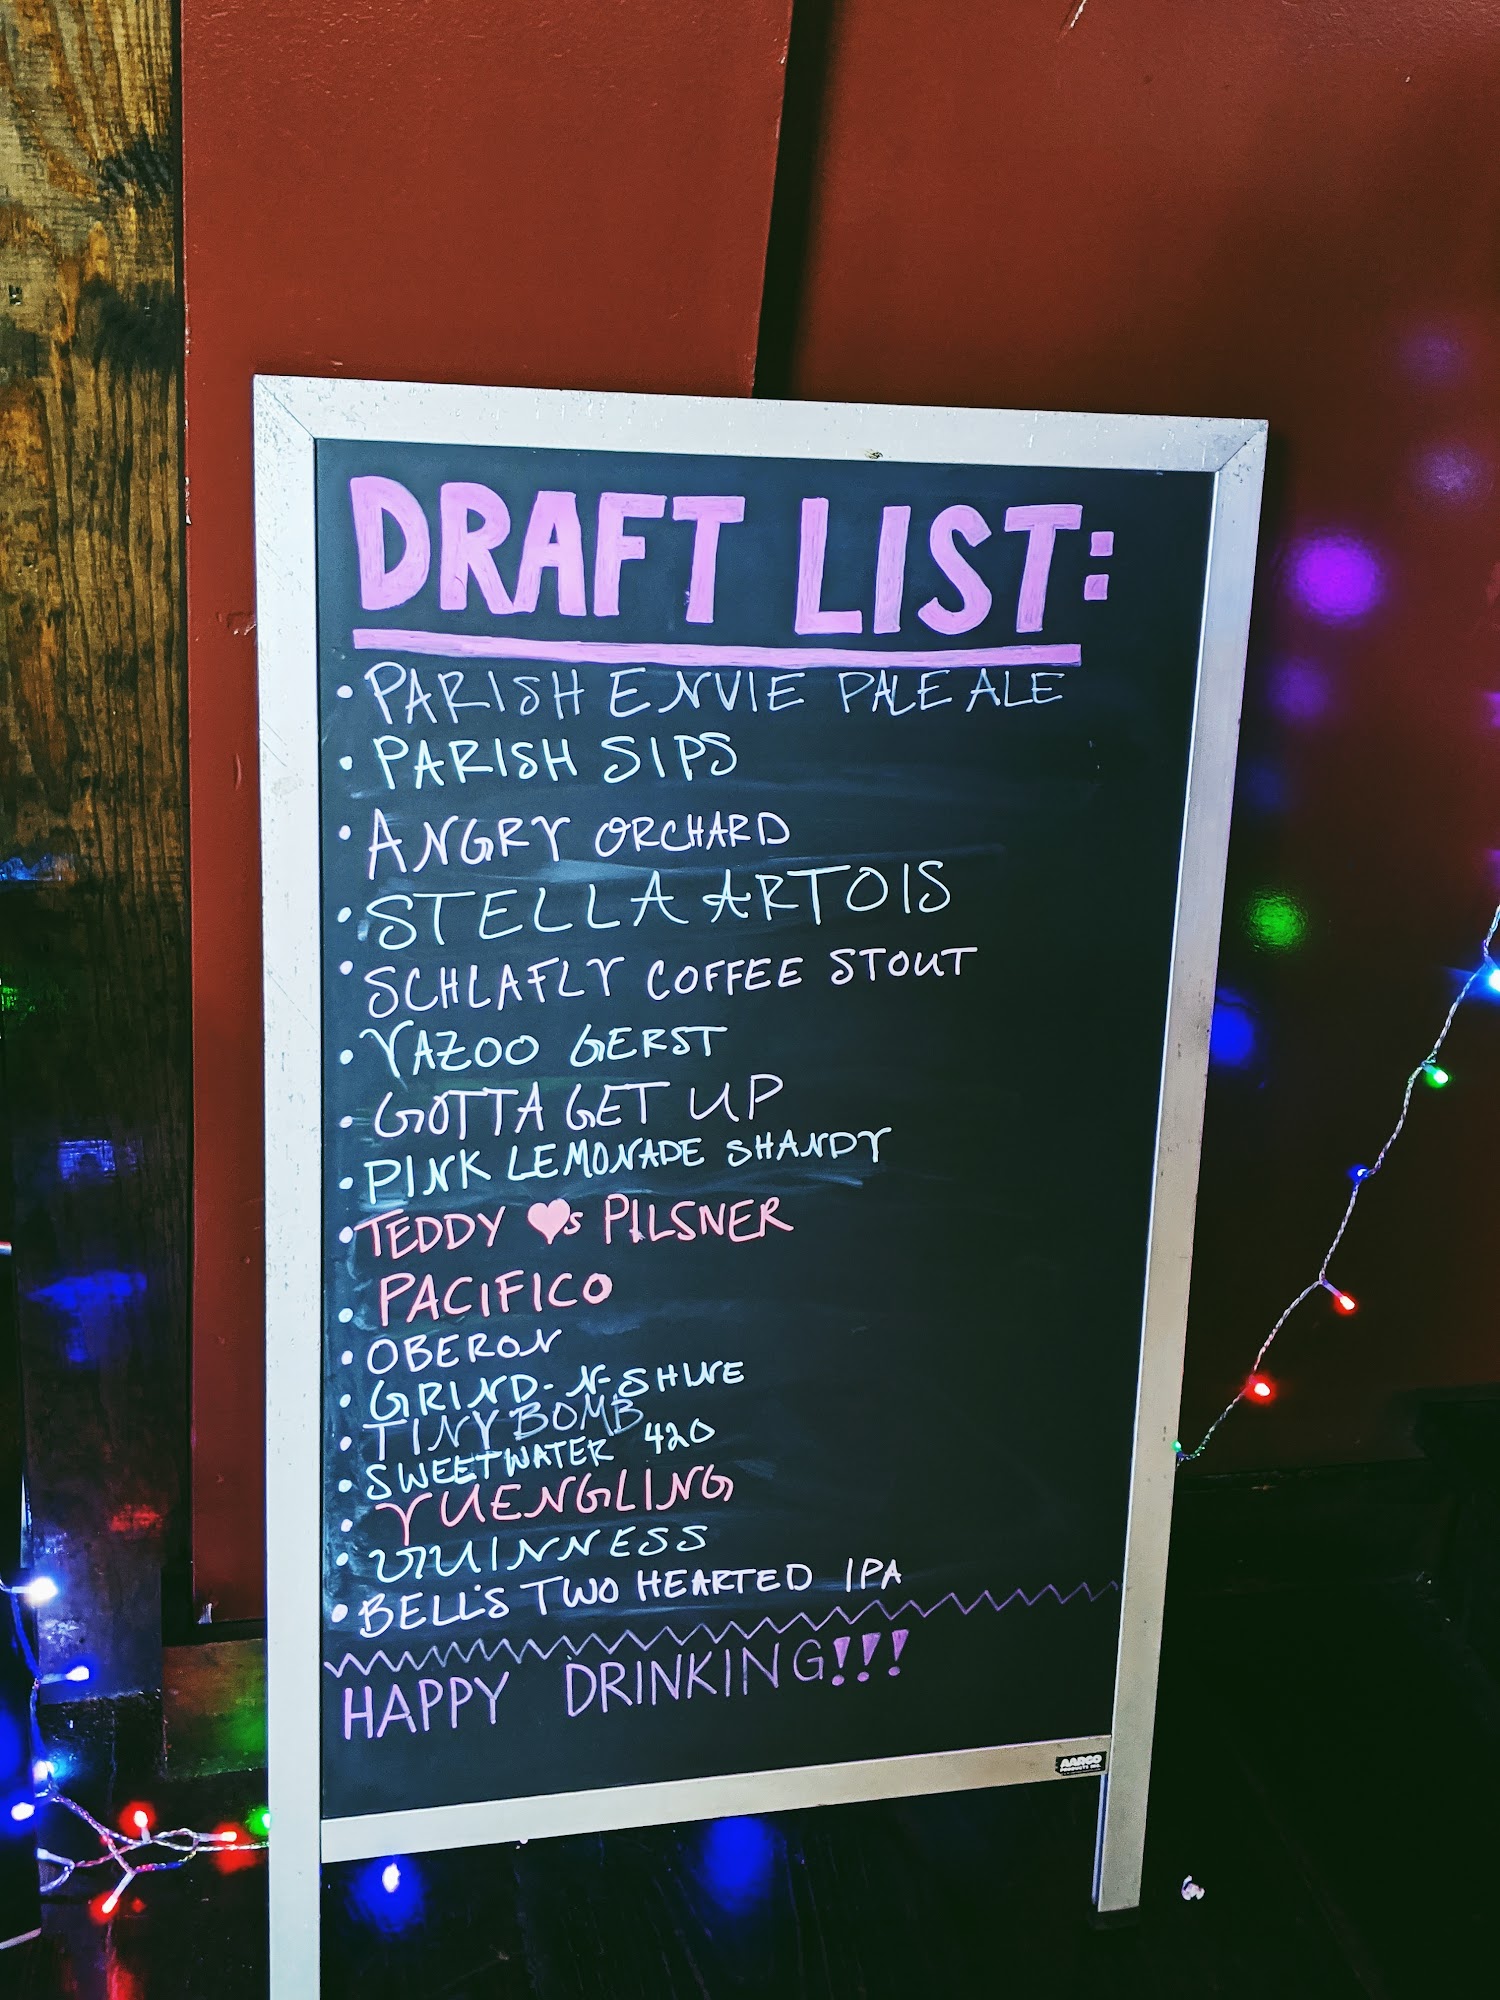 DRAFT LIST:
• PARISH ENVIE PALE ALE
• PARISH SIPS
• ANGRY ORCHARD
• STELLA ARTOIS
• SCHLAFLY COFFEE STOUT
• YAZOO GERST
• GOTTA GET UP
• PINK LEMONADE SHANDY
• TEDDY ♥s PILSNER
• PACIFICO
• OBERON
• GRIND-N-SHINE
• TINY BOMB
• SWEETWATER 420
• YUENGLING
• GUINNESS
• BELL'S TWO HEARTED IPA
HAPPY DRINKING!!!
AARCO
PRODUCTS INC.